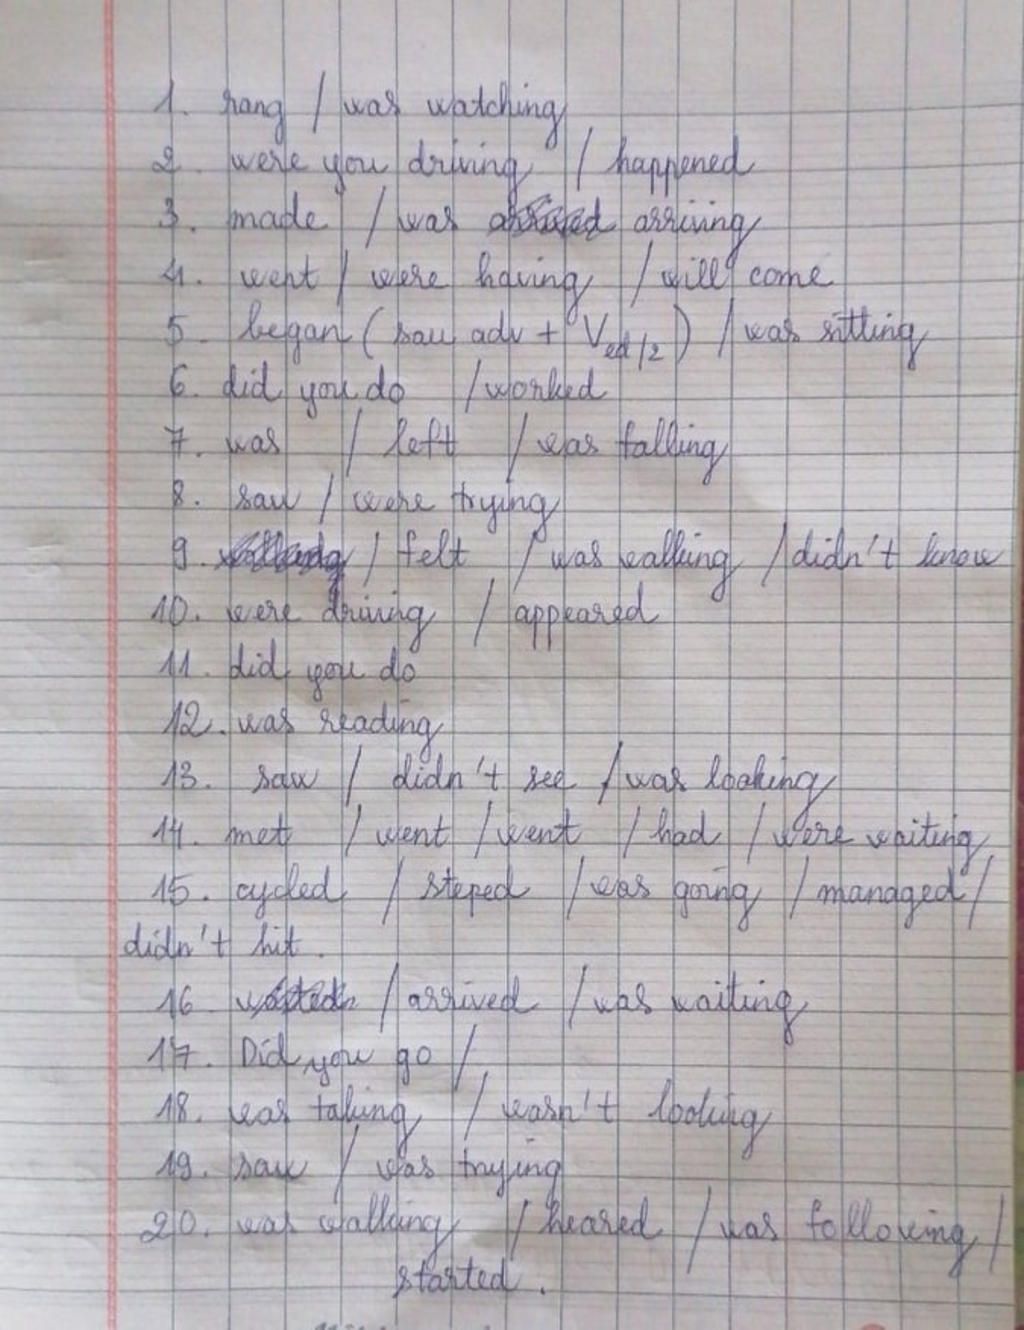 1. rang / was watching
2. were you driving / happened
3. made / was arriving
4. went / were having / will come
5. began (sau adv + Ved/2) / was sitting
6. did you do / worked
7. was / left / was falling
8. saw / were trying
9. / felt / was walking / didn't know
10. were driving / appeared
11. did you do
12. was reading
13. saw / didn't see / was looking
14. met / went / went / had / were waiting
15. cycled / steped / was going / managed /
didn't hit.
16. / arrived / was waiting
17. Did you go /
18. was taking / wasn't looking
19. saw / was trying
20. was walking / heared / was following /
started.